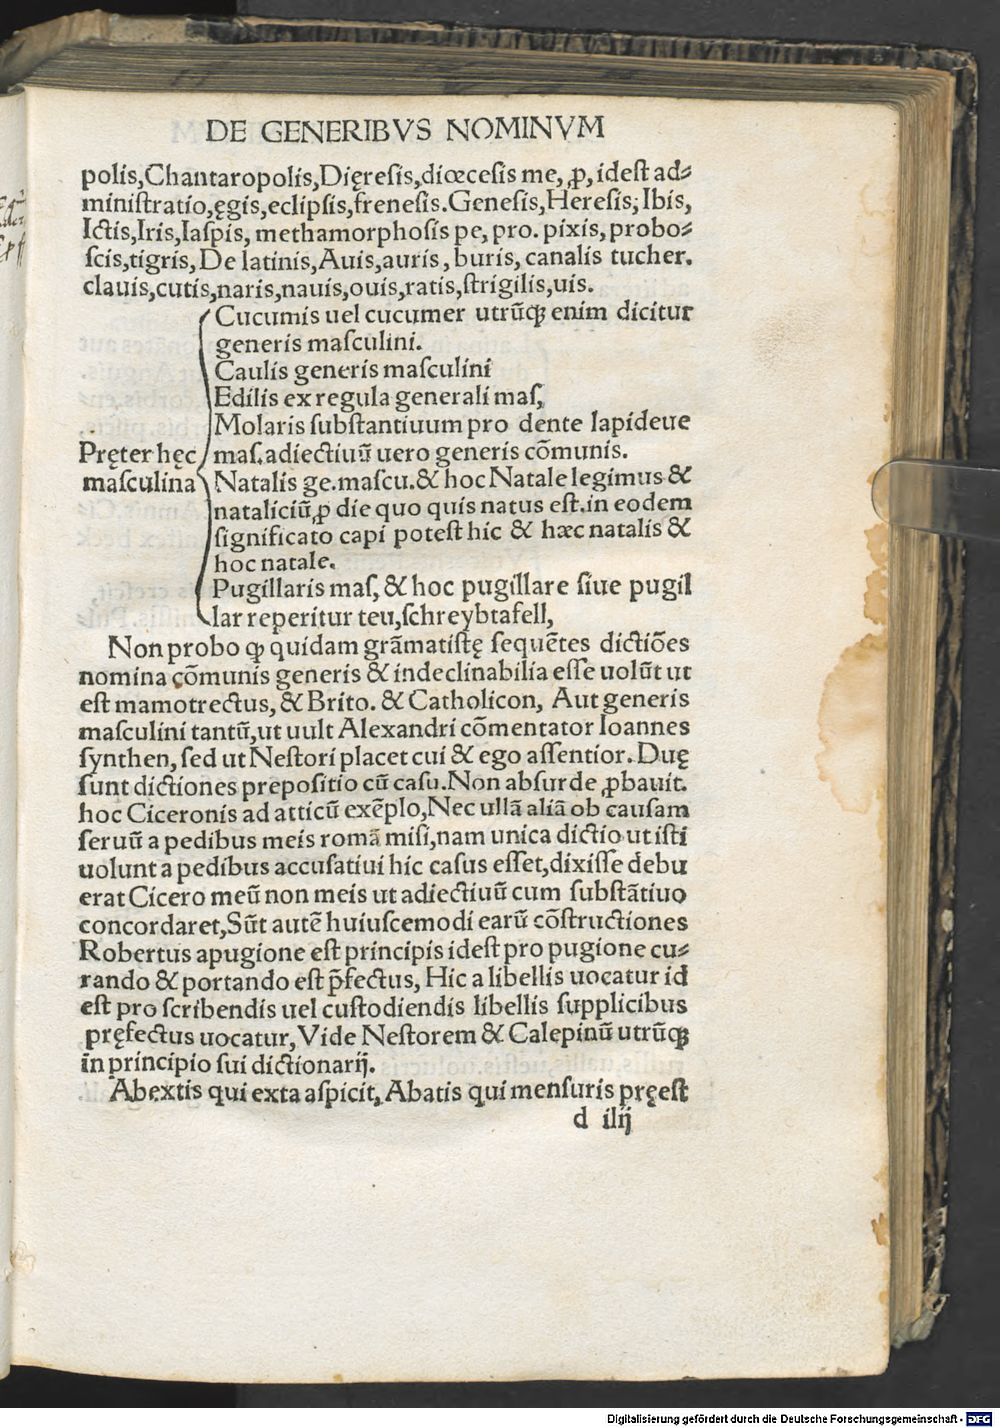 DE GENERIBVS NOMINVM
polis,Chantaropolis,Dięresis,diœcesis me, ꝓ, idest ad⸗
ministratio,ęgis,eclipsis,frenesis.Genesis,Heresis; Ibis,
Ictis,Iris,Iaspis, methamorphosis pe, pro. pixis, probo⸗
scis,tigris, De latinis,Auis,auris, buris, canalis tucher.
clauis,cutis,naris,nauis,ouis,ratis,strigilis,uis.
Cucumis uel cucumer utrũꝙ enim dicitur
generis masculini.
Caulis generis masculini
Edilis ex regula generali mas,
Molaris substantiuum pro dente lapideue
Pręter hęc mas.adiectiuũ uero generis cõmunis.
masculina Natalis ge.mascu.& hoc Natale legimus &
nataliciũ,ꝓ die quo quis natus est.in eodem
significato capi potest hic & hæc natalis &
hoc natale.
Pugillaris mas, & hoc pugillare siue pugil
lar reperitur teu,schreybtafell,
Non probo ꝙ quidam grãmatistę sequẽtes dictiões
nomina cõmunis generis & indeclinabilia esse uolũt ut
est mamotrectus, & Brito. & Catholicon, Aut generis
masculini tantũ,ut uult Alexandri cõmentator Ioannes
synthen, sed ut Nestori placet cui & ego assentior. Duę
sunt dictiones prepositio cũ casu.Non absurde ꝓbauit.
hoc Ciceronis ad atticũ exẽplo,Nec ullã aliã ob causam
seruũ a pedibus meis romã misi,nam unica dictio ut isti
uolunt a pedibus accusatiui hic casus esset,dixisse debu
erat Cicero meũ non meis ut adiectiuũ cum substãtiuo
concordaret,Sũt autẽ huiuscemodi earũ cõstructiones
Robertus apugione est principis idest pro pugione cu⸗
rando & portando est p̃fectus, Hic a libellis uocatur id
est pro scribendis uel custodiendis libellis supplicibus
pręfectus uocatur, Vide Nestorem & Calepinũ utrũꝙ
in principio sui dictionarij.
Abextis qui exta aspicit, Abatis qui mensuris pręest
d iiij
Digitalisierung gefördert durch die Deutsche Forschungsgemeinschaft - DFG